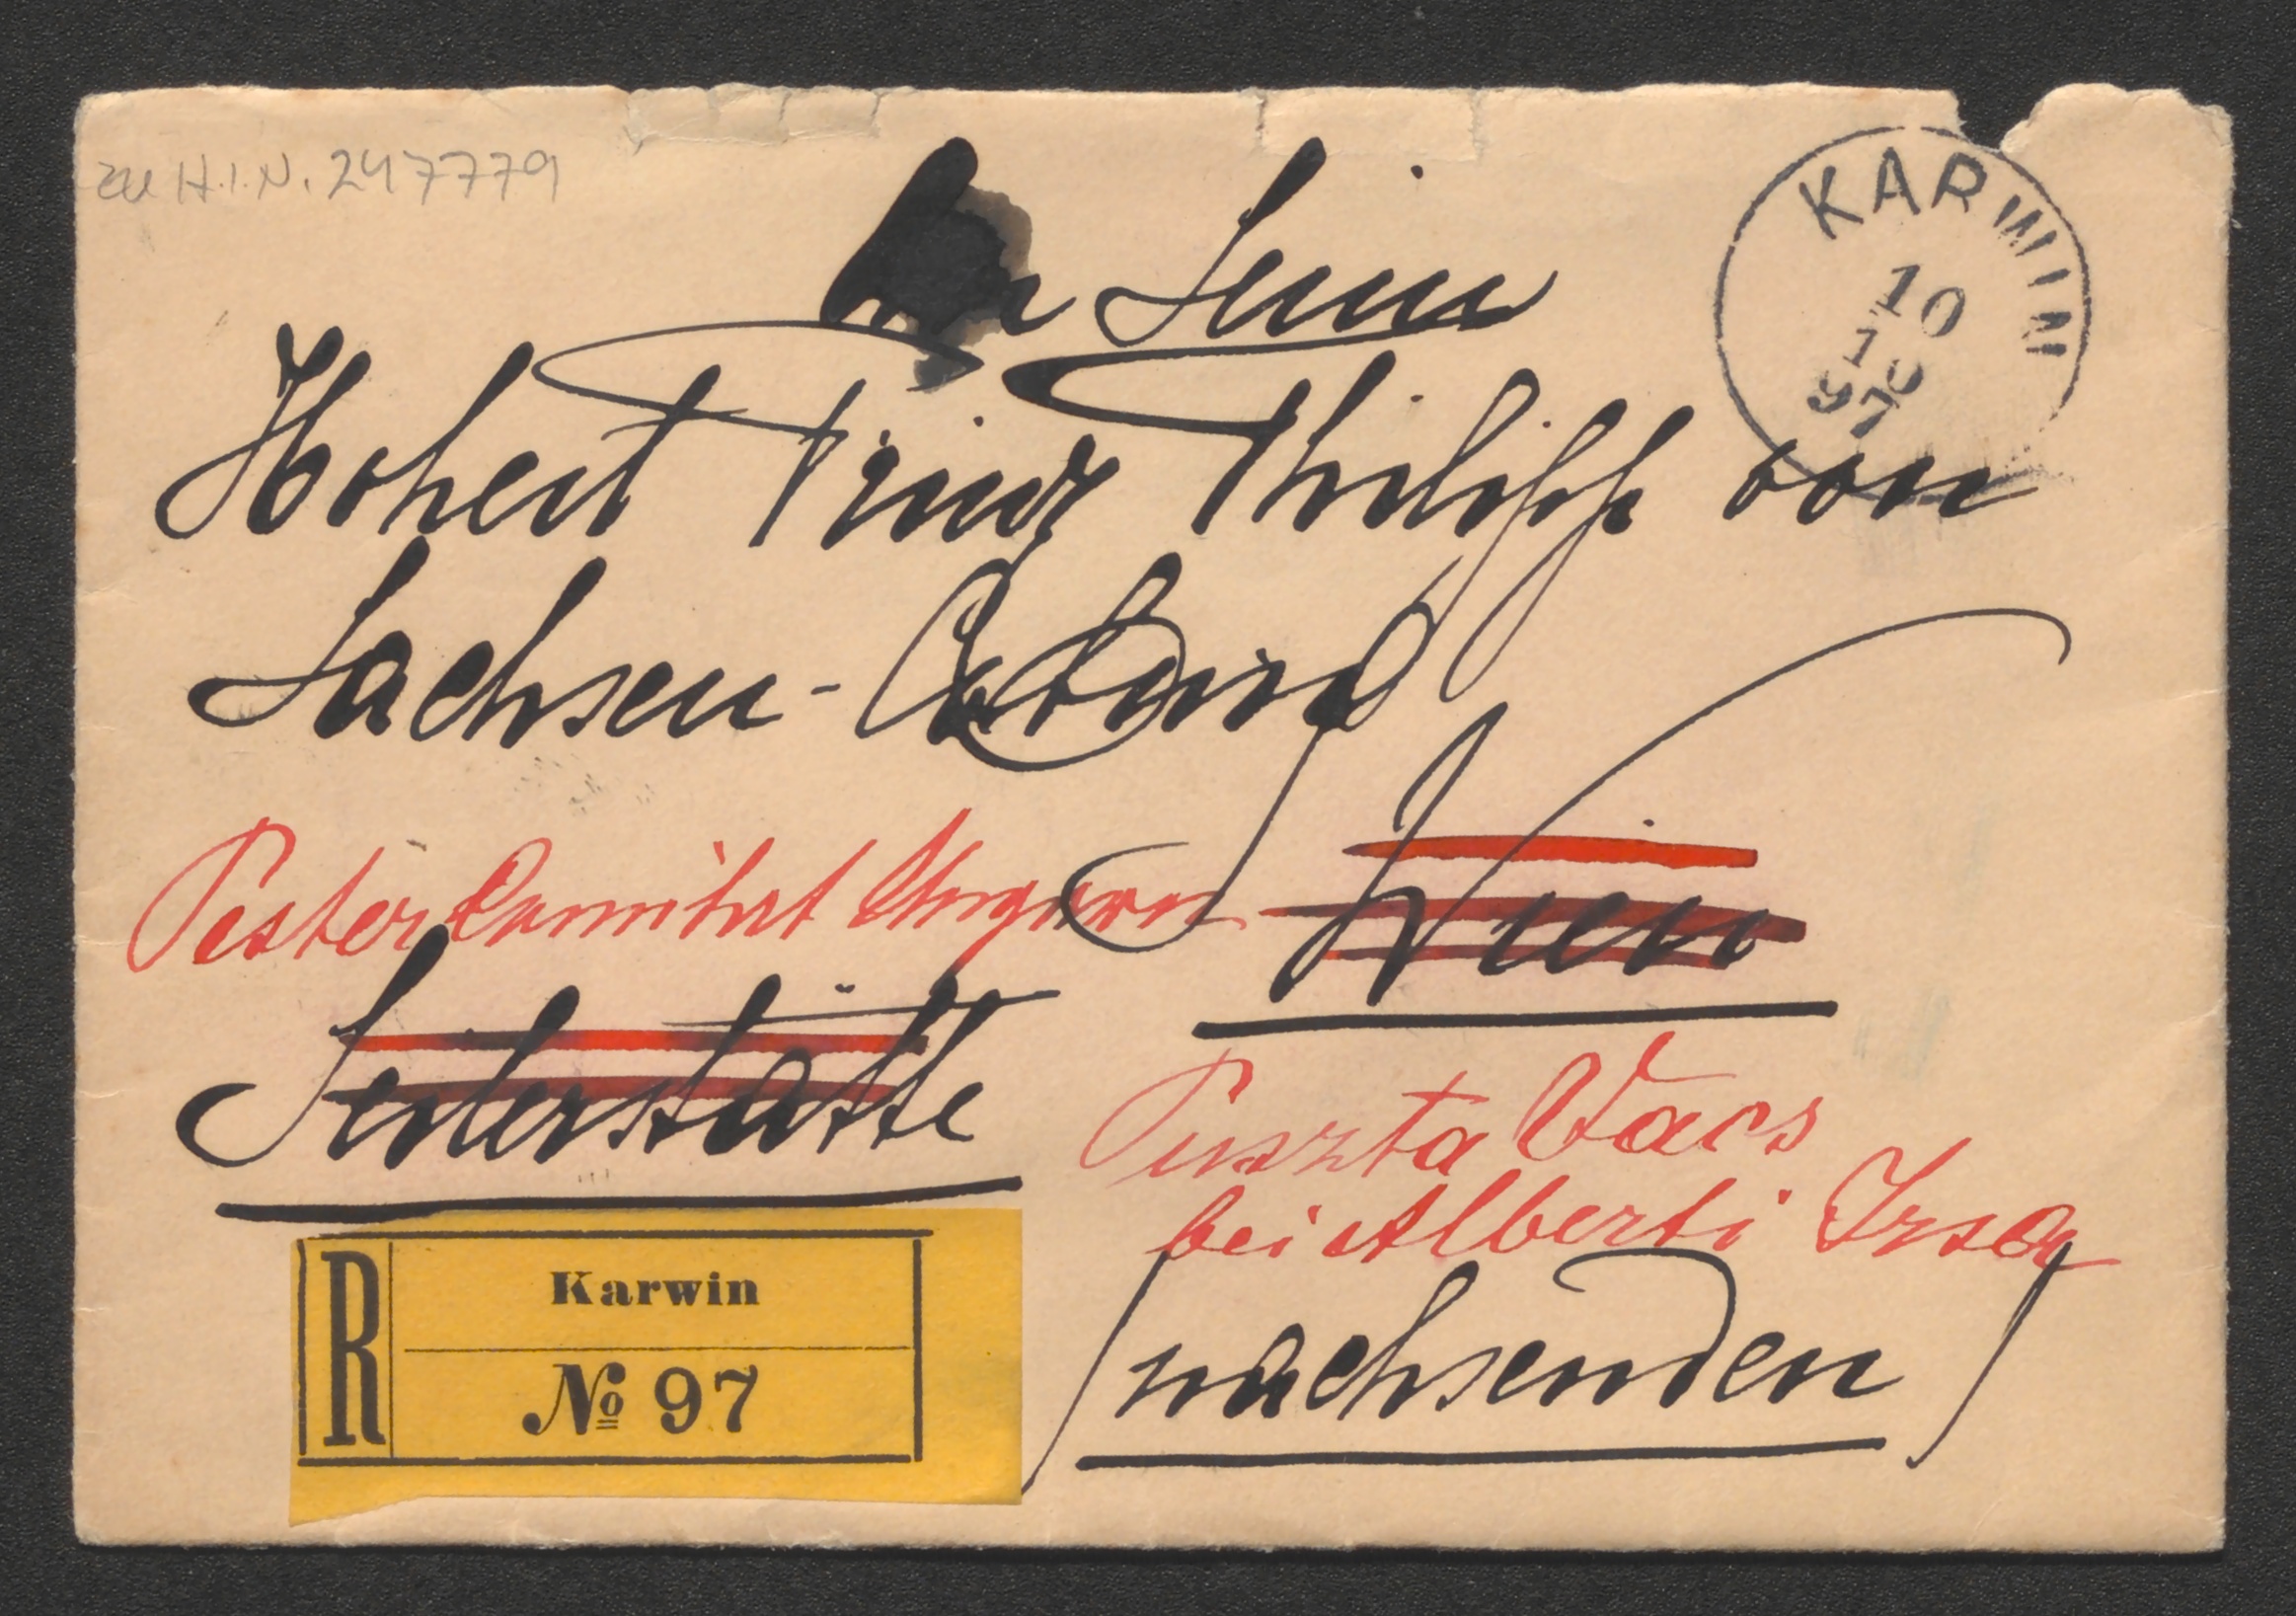 zu H.I.N. 247779
KARWIN
10
97
Seine
Hoheit Prinz Philipp von
Sachsen-Coburg
Wien
Pester Comitat Ungarn
Seilerstätte
Puszta Vacs
bei Alberti Irsa
nachsenden
R
Karwin
№ 97